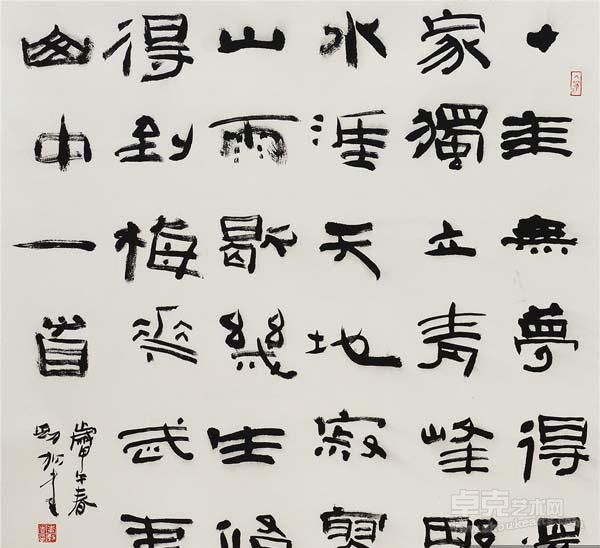 十年無夢得還
家獨立青峰野
水涯天地寂寥
山雨歇幾生修
得到梅花武夷
山中一首
歲甲午春
卓克艺术网